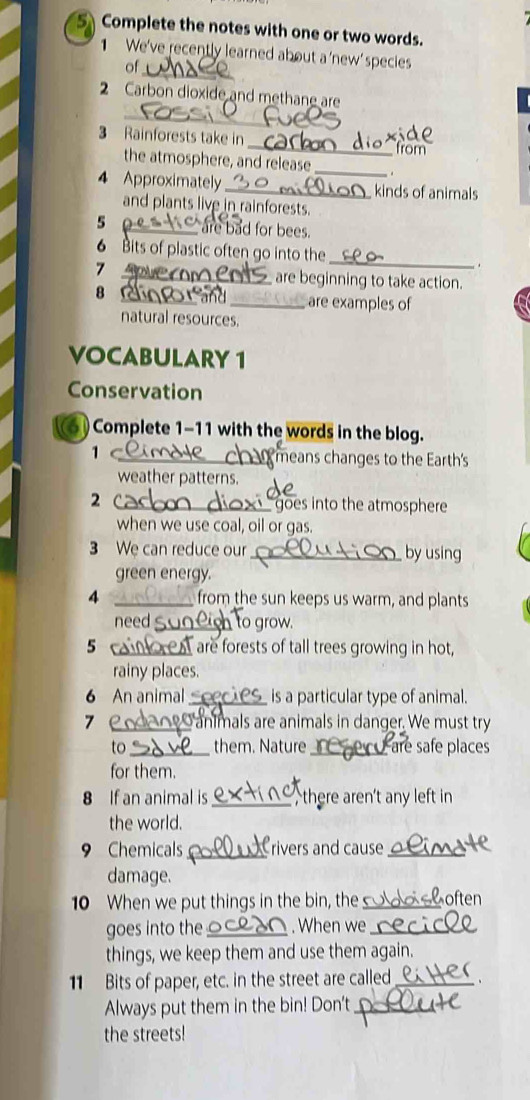 5 Complete the notes with one or two words.
1 We've recently learned about a 'new' species
of whale
2 Carbon dioxide and methane are
Fossil fuels
3 Rainforests take in carbon dioxide from
the atmosphere, and release ________.
4 Approximately 30 million kinds of animals
and plants live in rainforests.
5 pesticides are bad for bees.
6 Bits of plastic often go into the sea.
7 governments are beginning to take action.
8 and ________ are examples of
natural resources.
VOCABULARY 1
Conservation
6 Complete 1–11 with the words in the blog.
1 climate chang means changes to the Earth's
weather patterns.
2 carbon dioxide goes into the atmosphere
when we use coal, oil or gas.
3 We can reduce our pollution by using
green energy.
4 ________ from the sun keeps us warm, and plants
need sunligh to grow.
5 rainforest are forests of tall trees growing in hot,
rainy places.
6 An animal species is a particular type of animal.
7 endangered animals are animals in danger. We must try
to save them. Nature reserve are safe places
for them.
8 If an animal is extinct, there aren't any left in
the world.
9 Chemicals pollute rivers and cause climate
damage.
10 When we put things in the bin, the often
goes into the ocean. When we recicle
things, we keep them and use them again.
11 Bits of paper, etc. in the street are called litter.
Always put them in the bin! Don't pollute
the streets!